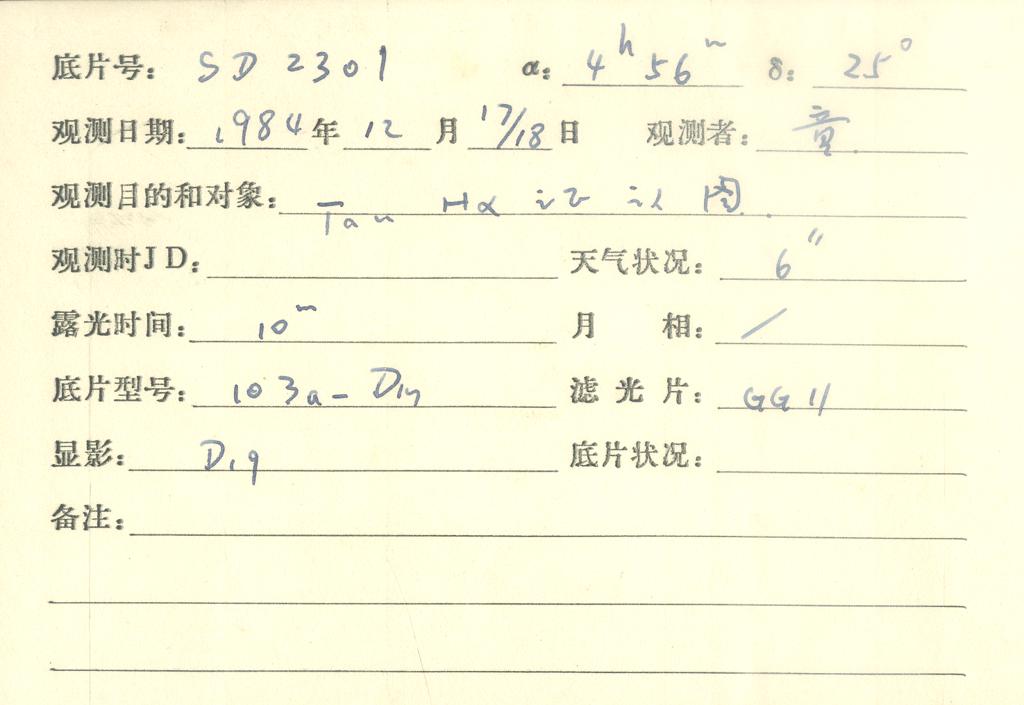 底片号: SD 2301 α: 4ʰ 56ᵐ δ: 25°
观测日期: 1984 年 12 月 17/18 日 观测者: 童
观测目的和对象: Tau Hα 证认图
观测时JD: 天气状况: 6″
露光时间: 10ᵐ 月相: /
底片型号: 103a- 滤光片: GG 11
显影: D19
底片状况:
备注: